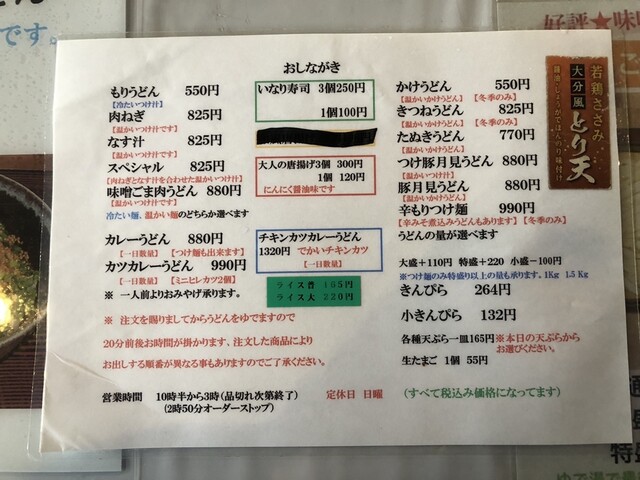 おしながき
もりうどん 550円
【冷たいつけ汁】
肉ねぎ 825円
【温かいつけ汁です】
なす汁 825円
【温かいつけ汁です】
スペシャル 825円
【肉ねぎとなす汁を合わせた温かいつけ汁】
味噌ごま肉うどん 880円
冷たい麺、温かい麺のどちらか選べます
カレーうどん 880円
【一日数量】 【つけ麺も出来ます】
カツカレーうどん 990円
【一日数量】 【ミニヒレカツ2個】
※ 一人前よりおみやげ承ります。
いなり寿司 3個250円
1個100円
大人の唐揚げ3個 300円
1個 120円
にんにく醤油味です
チキンカツカレーうどん
1320円 でかいチキンカツ
【一日数量】
ライス普 165円
ライス大 220円
かけうどん 550円
【温かいかけうどん】 【冬季のみ】
きつねうどん 825円
【温かいかけうどん】 【冬季のみ】
たぬきうどん 770円
【温かいかけうどん】
つけ豚月見うどん 880円
【温かいつけ汁】
豚月見うどん 880円
【温かいかけうどん】
辛もりつけ麺 990円
【辛みそ煮込みうどんもあります】【冬季のみ】
うどんの量が選べます
大盛+110円 特盛+220 小盛-100円
※つけ麺のみ特盛り以上の量も承ります。1Kg 1.5 Kg
きんぴら 264円
小きんぴら 132円
各種天ぷら一皿165円 ※本日の天ぷらから
お選びください。
生たまご 1個 55円
※ 注文を賜りましてからうどんをゆでますので
20分前後お時間が掛かります、注文した商品により
お出しする順番が異なる事もありますのでご了承ください。
営業時間 10時半から3時(品切れ次第終了)
(2時50分オーダーストップ)
定休日 日曜
(すべて税込み価格になってます)
若鶏ささみ
大分風
とり天
です。
好評★味